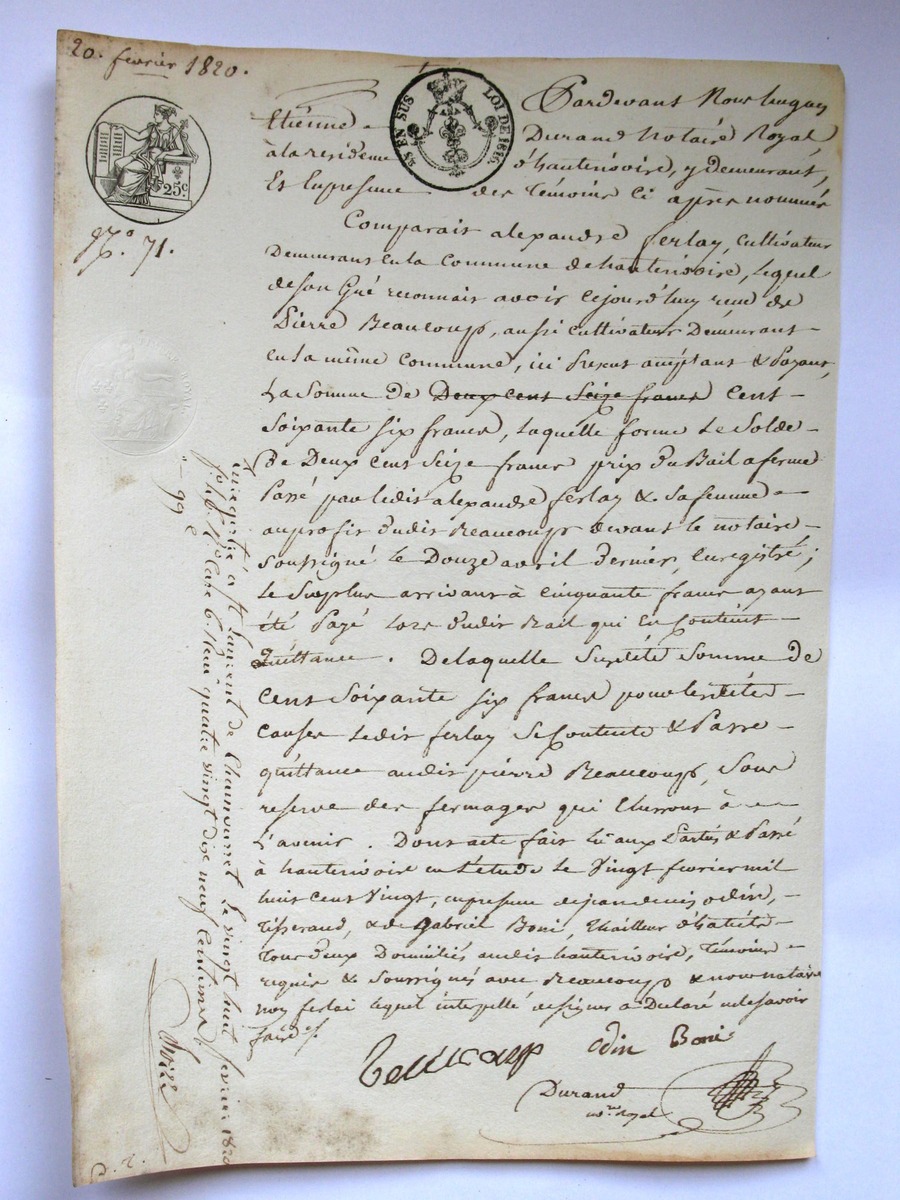 20. fevrier 1820.
25 EN SUS LOI DE 1816.
25c
No. 71.
Pardevant Nous hugues
Etienne Durand Notaire Royal
à la residence d'hauterivoire, y demeurant,
Et En presence des Témoins ci après nommés
Comparait alexandre ferlay, cultivateur
Demeurant en la commune de hauterivoire, lequel
de son Gré reconnait avoir cejourd'huy reçu de
Pierre Beaucoup, aussi cultivateur Demeurant
en la même commune, ici present acceptant & payant,
La Somme de Deux cent Seize francs Cent
Soixante six francs, laquelle forme Le Solde
De Deux cent Seize francs prix du Bail a ferme
Passé par ledit alexandre ferlay & sa femme
au profit dudit Beaucoup devant le notaire
soussigné le Douze avril dernier, Enregistré;
Le Surplus arrivant à cinquante francs ayant
été Payé lors dudit Bail qui en contient
Quittance. De laquelle Susdite Somme de
cent Soixante six francs pour les dites
causes Ledit ferlay Se Contente & Passe
quittance audit pierre Beaucoup, Sous
reserve des fermages qui Echerront à
L'avenir. Dont acte fait Lu aux Parties & Passé
à hauterivoire en L'etude Le Vingt fevrier mil
huit cent Vingt, en presence de jean denis odin,
Tisserand, & de Gabriel Boni, Thailleur d'habits
Tous deux Domiciliés audit hauterivoire, Témoins
requis & Soussignés avec Beaucoup & nous notaire
non ferlai lequel interpellé de signer a Declaré ne le savoir
faire.
odin Boni
Durand
no.re royal
Enregistré à St Laurent de Chamousset Le vingt huit fevrier 1820
case 6. Reçu quatre vingt dix neuf centimes
99 c